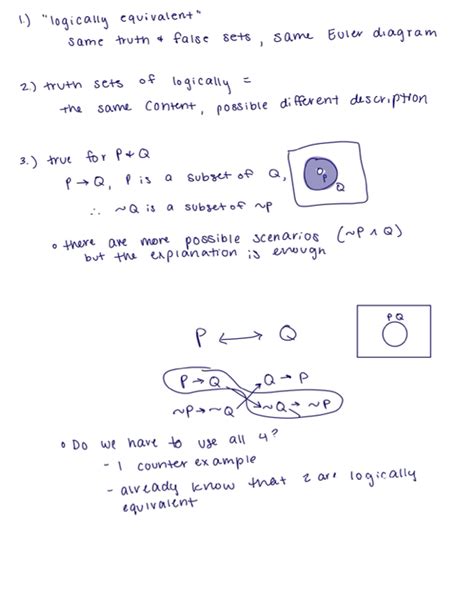 1.) "logically equivalent"
same truth & false sets, same Euler diagram
2.) truth sets of logically =
the same content, possible different description
3.) true for P & Q
P → Q, P is a subset of Q,
P
Q
∴ ~Q is a subset of ~P
• there are more possible scenarios (~P ∧ Q)
but the explanation is enough
P ↔ Q
P Q
P → Q   Q → P
~P → ~Q   ~Q → ~P
• Do we have to use all 4?
- 1 counter example
- already know that 2 are logically
equivalent